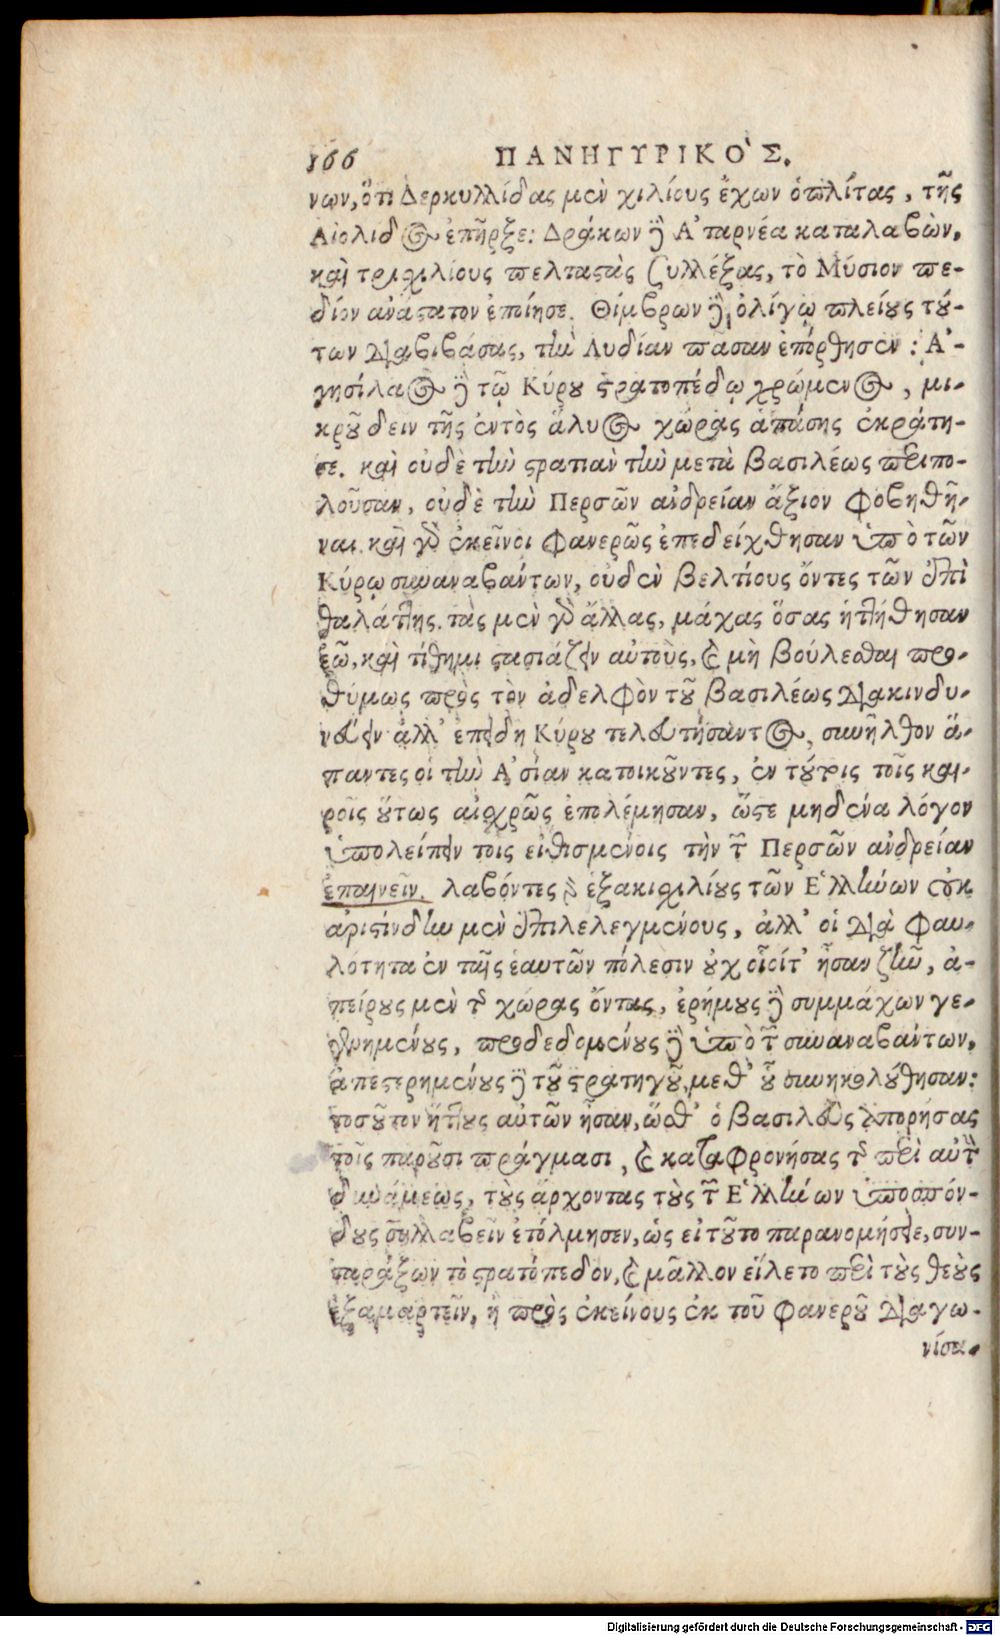 166 ΠΑΝΗΓΥΡΙΚΟ'Σ.
νων, ὅτι Δερκυλλίδας μὲν χιλίους ἔχων ὁπλίτας, τῆς
Αἰολίδος ἐπῆρξε: Δράκων ἢ Α'ταρνέα καταλαβὼν,
καὶ τριχιλίους πελταστὰς συλλέξας, τὸ Μύσιον πε-
δίον ἀνάστατον ἐποίησε. Θίμβρων ἢ, ὀλίγῳ πλείους τού-
των διαβιβάσας, τὴν Λυδίαν πᾶσαν ἐπόρθησεν: Α'-
γησίλαος ἢ τῷ Κύρου στρατοπέδῳ χρώμενος, μι-
κροῦ δειν τῆς ἐντὸς ἅλυος χώρας ἁπάσης ἐκράτη-
σε. καὶ οὐδὲ τὴν στρατιὰν τὴν μετὰ βασιλέως περιπο-
λοῦσαν, οὐδὲ τὴν Περσῶν ἀνδρείαν ἄξιον φοβηθῆ-
ναι. καὶ γὰρ ἐκεῖνοι φανερῶς ἐπεδείχθησαν ὑπὸ τῶν
Κύρῳ συναναβάντων, οὐδὲν βελτίους ὄντες τῶν ἐπὶ
θαλάττης. τὰς μὲν γὰρ ἄλλας, μάχας ὅσας ἡττήθησαν
ἐῶ, καὶ τίθημι στασιάζειν αὐτοὺς, καὶ μὴ βούλεσθαι προ-
θύμως πρὸς τὸν ἀδελφὸν τοῦ βασιλέως διακινδυ-
νεύειν. ἀλλ' ἐπειδη Κύρου τελευτήσαντος, συνῆλθον ἅ-
παντες οἱ τὴν Α'σίαν κατοικοῦντες, ἐν τούτοις τοῖς και-
ροῖς οὕτως αἰσχρῶς ἐπολέμησαν, ὥστε μηδένα λόγον
ὑπολείπειν τοις εἰθισμένοις τὴν τῶν Περσῶν ἀνδρείαν
ἐπαινεῖν. λαβόντες γὰρ ἑξακισχιλίους τῶν Ε'λλήνων οὐκ
ἀριστίνδην μὲν ἐπιλελεγμένους, ἀλλ' οἱ διὰ φαυ-
λότητα ἐν ταῖς ἑαυτῶν πόλεσιν οὐχ οἷοίτ' ἦσαν ζῆν, ἀ-
πείρους μὲν τῆς χώρας ὄντας, ἐρήμους ἢ συμμάχων γε-
γενημένους, προδεδομένους ἢ ὑπὸ τῶν συναναβάντων,
ἀπεστερημένους ἢ τοῦ στρατηγοῦ, μεθ' οὗ συνηκολούθησαν:
τοσοῦτον ἥττους αὐτῶν ἦσαν, ὥσθ' ὁ βασιλεὺς ἀπορήσας
τοῖς παροῦσι πράγμασι, καὶ καταφρονήσας τῆς περὶ αὑτὸν
δυνάμεως, τοὺς ἄρχοντας τοὺς τῶν Ε'λλήνων ὑποσπόν-
δους συλλαβεῖν ἐτόλμησεν, ὡς εἰ τοῦτο παρανομήσειε, συν-
ταράξων τὸ στρατόπεδον, καὶ μᾶλλον εἵλετο περὶ τοὺς θεοὺς
ἐξαμαρτεῖν, ἢ πρὸς ἐκείνους ἐκ τοῦ φανεροῦ διαγω-
νίσα-
Digitalisierung gefördert durch die Deutsche Forschungsgemeinschaft - DFG